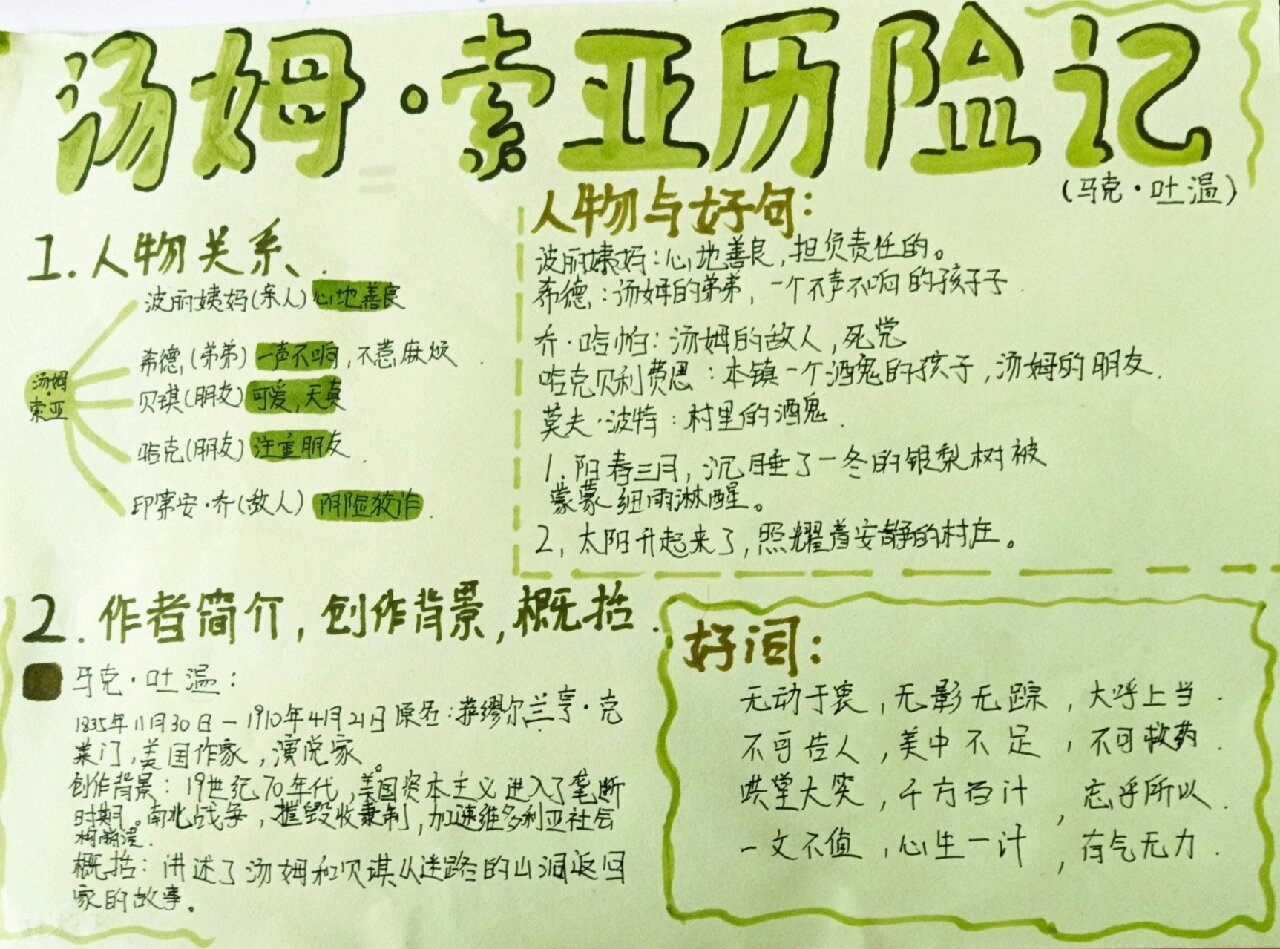 汤姆·索亚历险记
(马克·吐温)
1.人物关系、
汤姆·索亚
波丽姨妈(亲人)心地善良
希德,(弟弟)一声不响,不惹麻烦.
贝琪(朋友)可爱,天真
哈克(朋友)注重朋友.
印第安·乔(敌人)阴险狡诈.
人物与好句:
波丽姨妈:心地善良,担负责任的。
希德:汤姆的弟弟,一个不声不响的孩子子.
乔·哈帕:汤姆的敌人,死党
哈克贝利费恩:本镇一个酒鬼的孩子,汤姆的朋友.
莫夫·波特:村里的酒鬼.
1.阳春三月,沉睡了一冬的银梨树被
蒙蒙细雨淋醒。
2,太阳升起来了,照耀着安静的村庄。
2.作者简介,创作背景,概括.
马克·吐温:
1835年11月30日—1910年4月21日原名:萨缪尔兰亨·克
莱门,美国作家,演说家。
创作背景:19世纪70年代,美国资本主义进入了垄断
时期。南北战争,摧毁奴隶制,加速维多利亚社会
概括:讲述了汤姆和贝琪从迷路的山洞返回
家的故事。
好词:
无动于衷,无影无踪,大呼上当.
不可告人,美中不足,不可救药.
哄堂大笑,千方百计,忘乎所以.
一文不值,心生一计,有气无力.